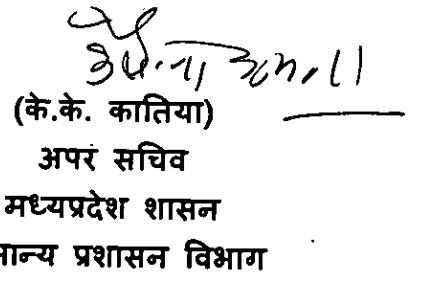 (के.के. कातिया)
अपर सचिव
मध्यप्रदेश शासन
मान्य प्रशासन विभाग